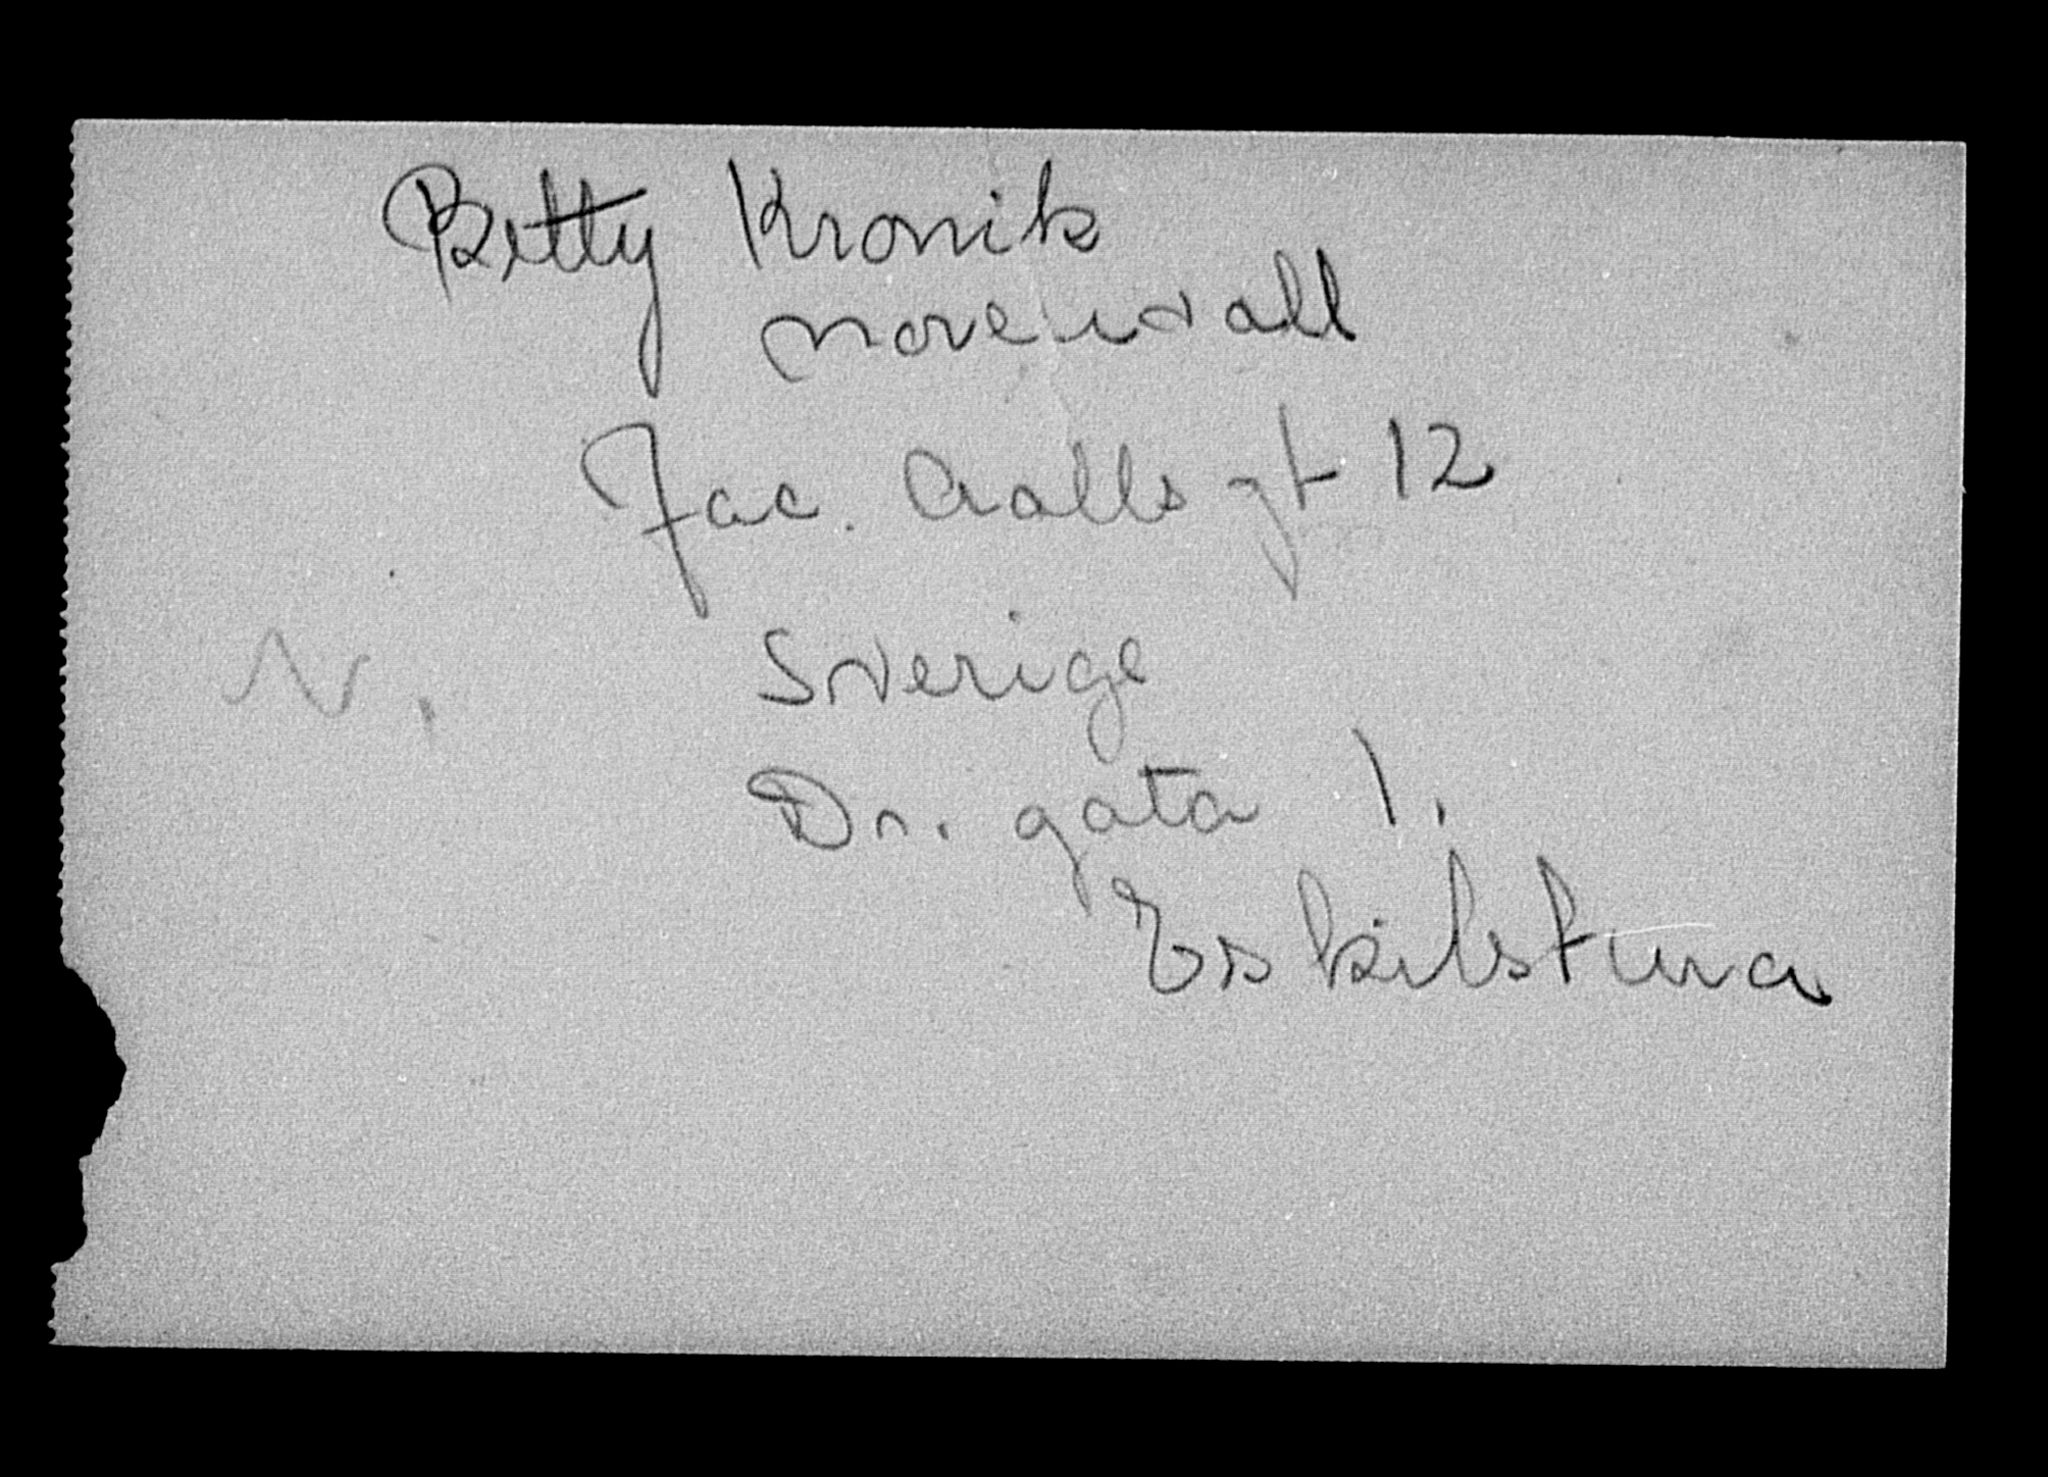 Betty Kronik
Jac. Aalls gt 12
Sverige
N.
Dr. gata 1.
Eskilstuna